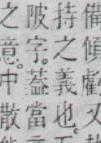 備傾虧又
持之義也。
陂字。蓋當
之意。中散